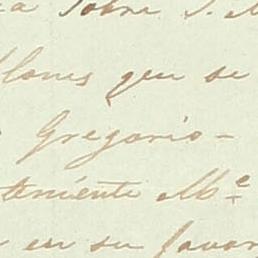 sobre S. M
que se
Gregorio-
teniente M.e
en su favor